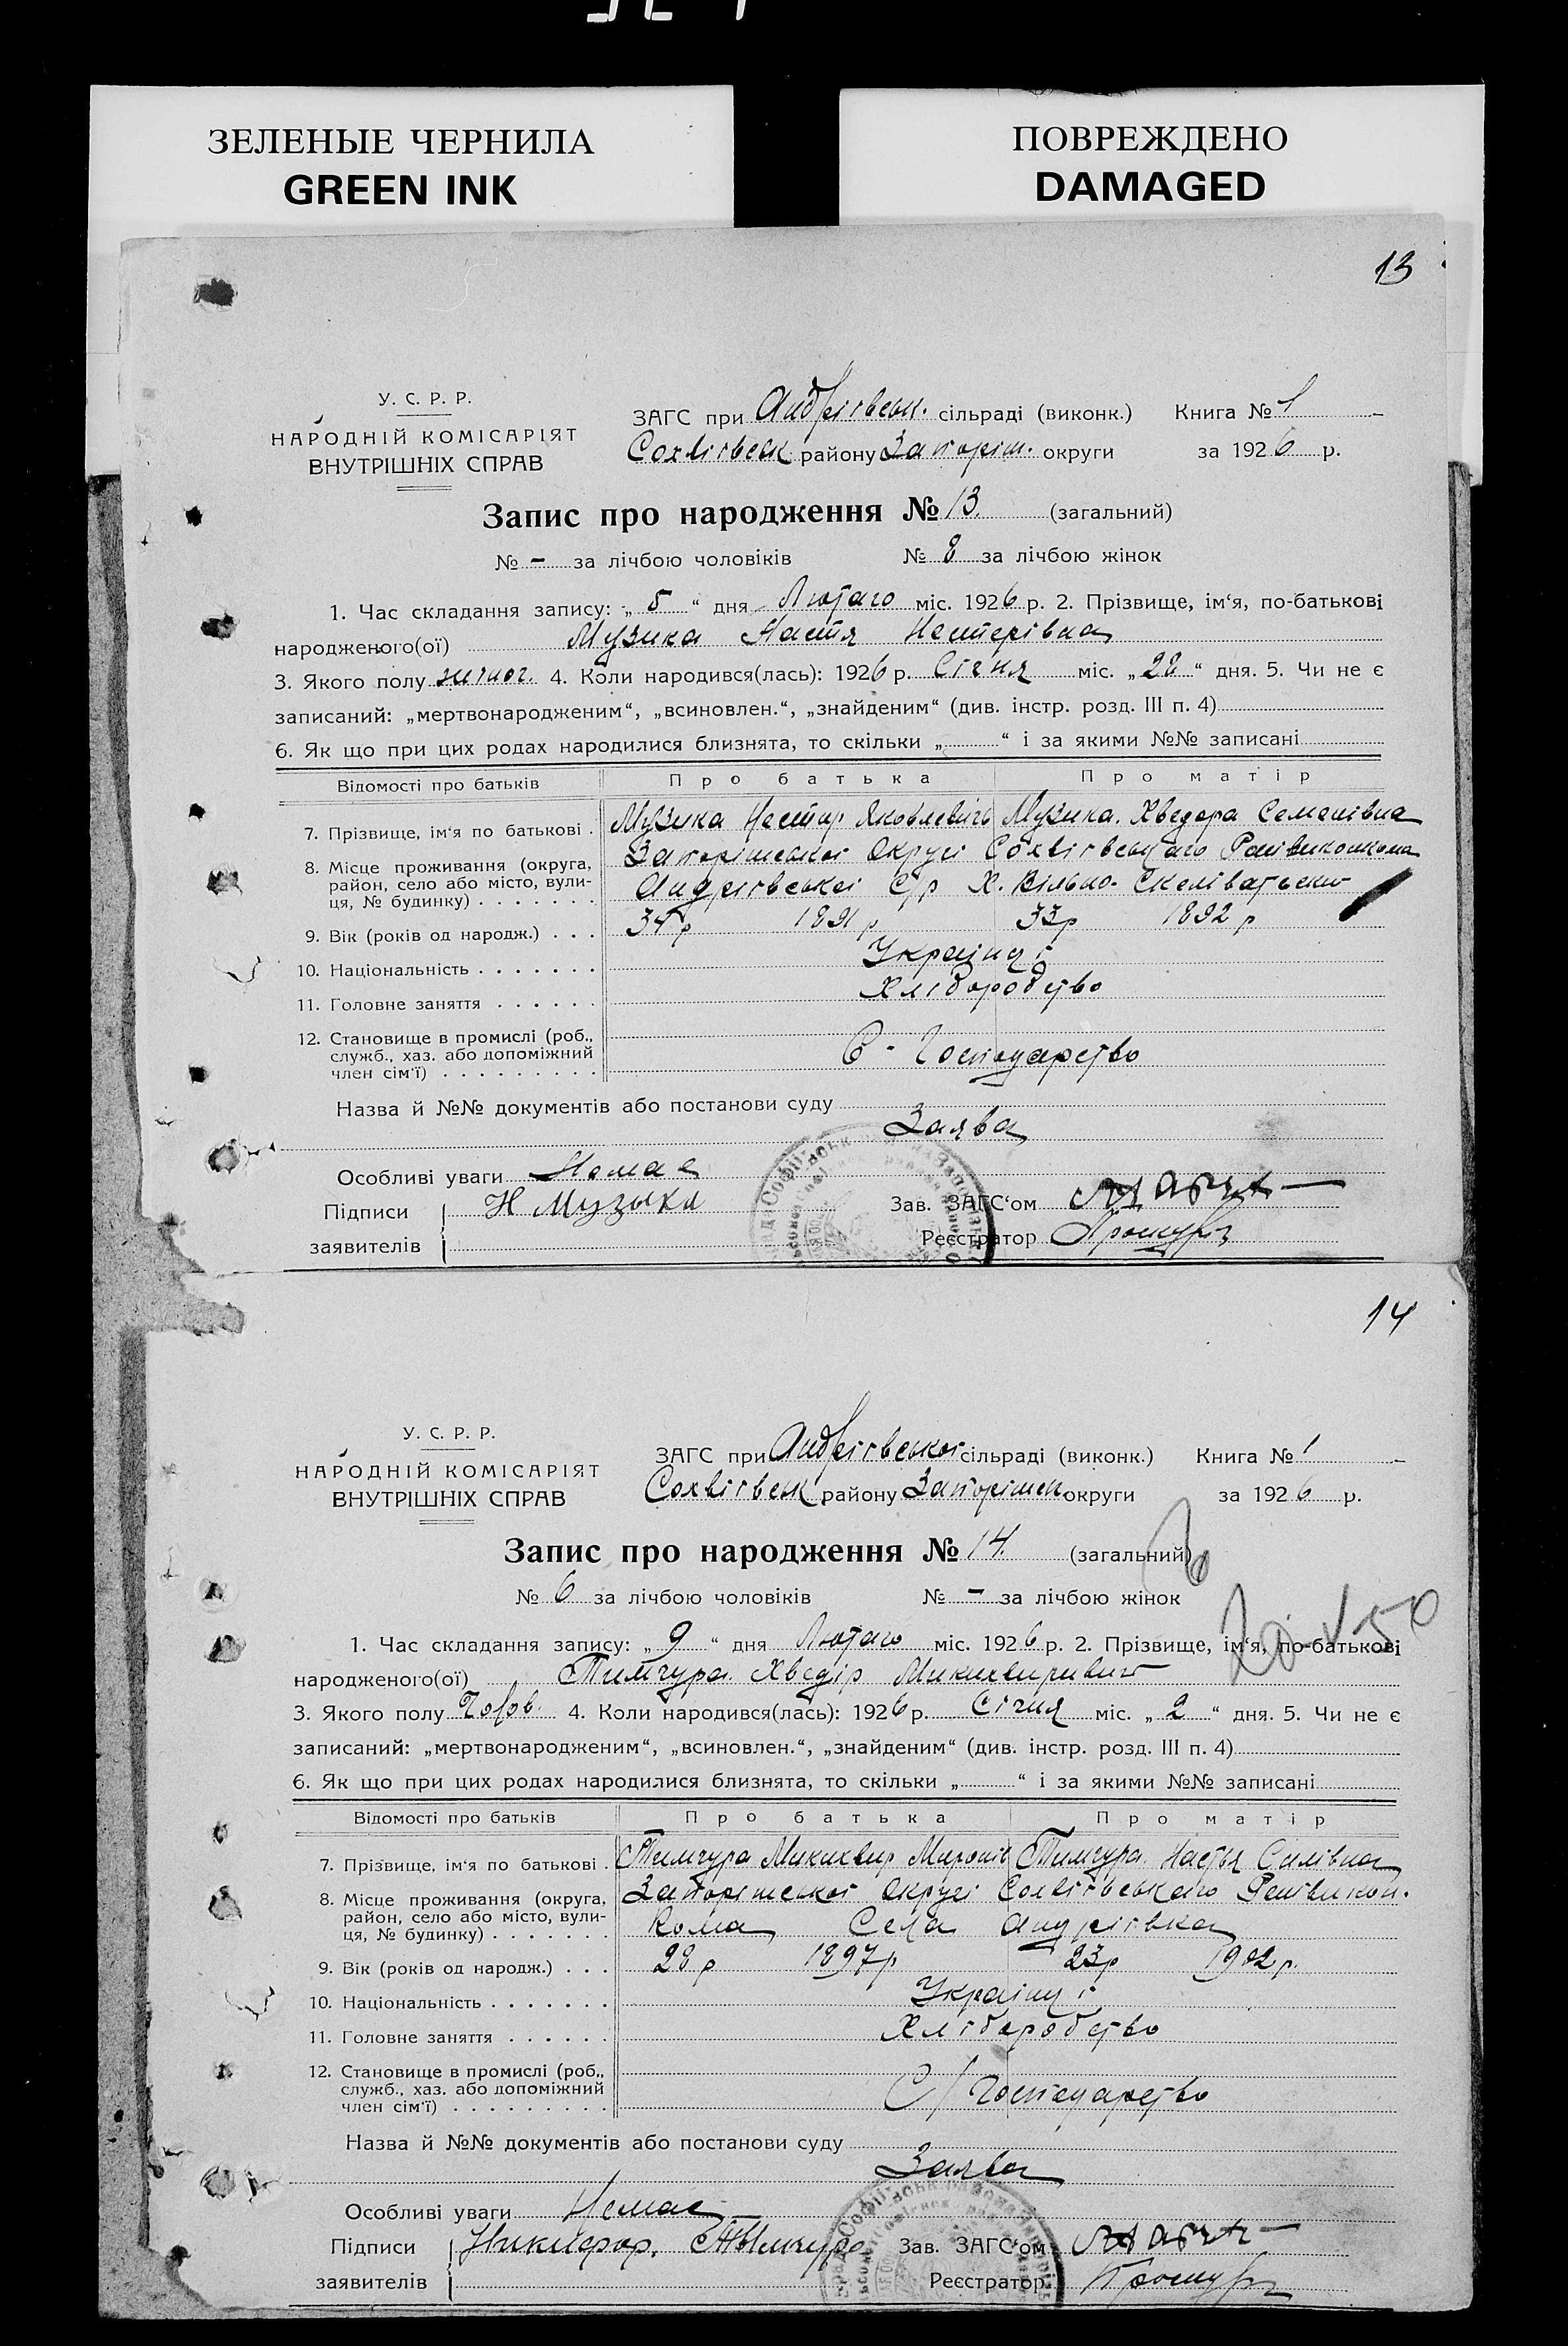 ЗЕЛЕНЫЕ ЧЕРНИЛА
GREEN INK
ПОВРЕЖДЕНО
DAMAGED
13
У. С. Р. Р.
НАРОДНІЙ КОМІСАРІЯТ
ВНУТРІШНІХ СПРАВ
ЗАГС при Андріївськ. сільраді (виконк.) Книга № 1
Сохвіївськ району Запоріж. округи за 1926 р.
Запис про народження № 13. (загальний)
№ - за лічбою чоловіків № 8 за лічбою жінок
1. Час складання запису: „ 5 “ дня Лютаго міс. 1926 р. 2. Прізвище, ім‘я, по-батькові
народженого(ої) Музика Настя Нестерівна
3. Якого полу жіноч. 4. Коли народився(лась): 1926 р. Січня міс. „ 28 “ дня. 5. Чи не є
записаний: „мертвонародженим“, „всиновлен.“, „знайденим“ (див. інстр. розд. III п. 4)
6. Як що при цих родах народилися близнята, то скільки „ “ і за якими №№ записані
Відомості про батьків Про батька Про матір
7. Прізвище, ім‘я по батькові . Музика Нестир Яковлевичь Музика. Хведора Семенівна
8. Місце проживання (округа, Запоріжської Округі Сохвіївського Райвиконкома
район, село або місто, вули- Андріївської С/р Х. Вільно-
ця, № будинку)
9. Вік (років од народж.) . . . 34 р 1891 р 33р 1892 р
10. Національність Українці
11. Головне заняття Хліборобство
12. Становище в промислі (роб.,
служб., хаз. або допоміжний С - Господарство
член сім‘ї)
Назва й №№ документів або постанови суду
Заява
Особливі уваги Немає
Підписи Н Музыка Зав. ЗАГС‘ом
заявителів Реєстратор
14
У. С. Р. Р.
НАРОДНІЙ КОМІСАРІЯТ
ВНУТРІШНІХ СПРАВ
ЗАГС при Андріївської сільраді (виконк.) Книга № 1
Сохвіївськ району Запоріжськ. округи за 1926 р.
Запис про народження № 14. (загальний)
№ 6 за лічбою чоловіків № - за лічбою жінок
1. Час складання запису: „ 9 “ дня Лютаго міс. 1926 р. 2. Прізвище, ім‘я, по-батькові
народженого(ої) Тимчура Хведір Микихвирович
3. Якого полу Чолов. 4. Коли народився(лась): 1926 р. Січня міс. „ 2 “ дня. 5. Чи не є
записаний: „мертвонародженим“, „всиновлен.“, „знайденим“ (див. інстр. розд. III п. 4)
6. Як що при цих родах народилися близнята, то скільки „ “ і за якими №№ записані
Відомості про батьків Про батька Про матір
7. Прізвище, ім‘я по батькові . Тимчура Микихвир Миронів Тимчура Настья Силівна
8. Місце проживання (округа, Запоріжської Округі Сохвіївського Райвикон-
район, село або місто, вули- кома Села Андріївка
ця, № будинку)
9. Вік (років од народж.) . . . 28 р 1897р 23р 1902 р.
10. Національність Українці
11. Головне заняття Хліборобство
12. Становище в промислі (роб.,
служб., хаз. або допоміжний С/Господарство
член сім‘ї)
Назва й №№ документів або постанови суду
Заява
Особливі уваги Немає
Підписи Никифор. Тымчура Зав. ЗАГС‘ом
заявителів Реєстратор